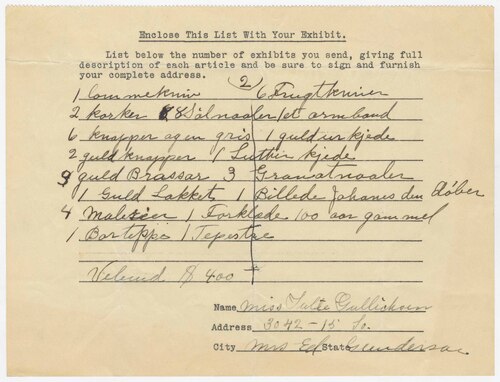 Enclose This List With Your Exhibit.
List below the number of exhibits you send, giving full
description of each article and be sure to sign and furnish
your complete address.
1 Lommekniv 2/6 Frugtkniver
2 korker 8 Sölnaaler/et armbaand
6 knapper og en gris 1 guldurkjede
2 guldknapper 1 Luther kjede
9 guld Brassar 3 Granatnaaler
1 Guld Lokket 1 Billede Johanes den Döber
4 Malerier 1 Forklæde 100 aar gammel
1 Borteppe 1 Tepestre
$400
Name Miss Gullickson
Address 3042-15 So.
City Mrs Ed State Gunderson